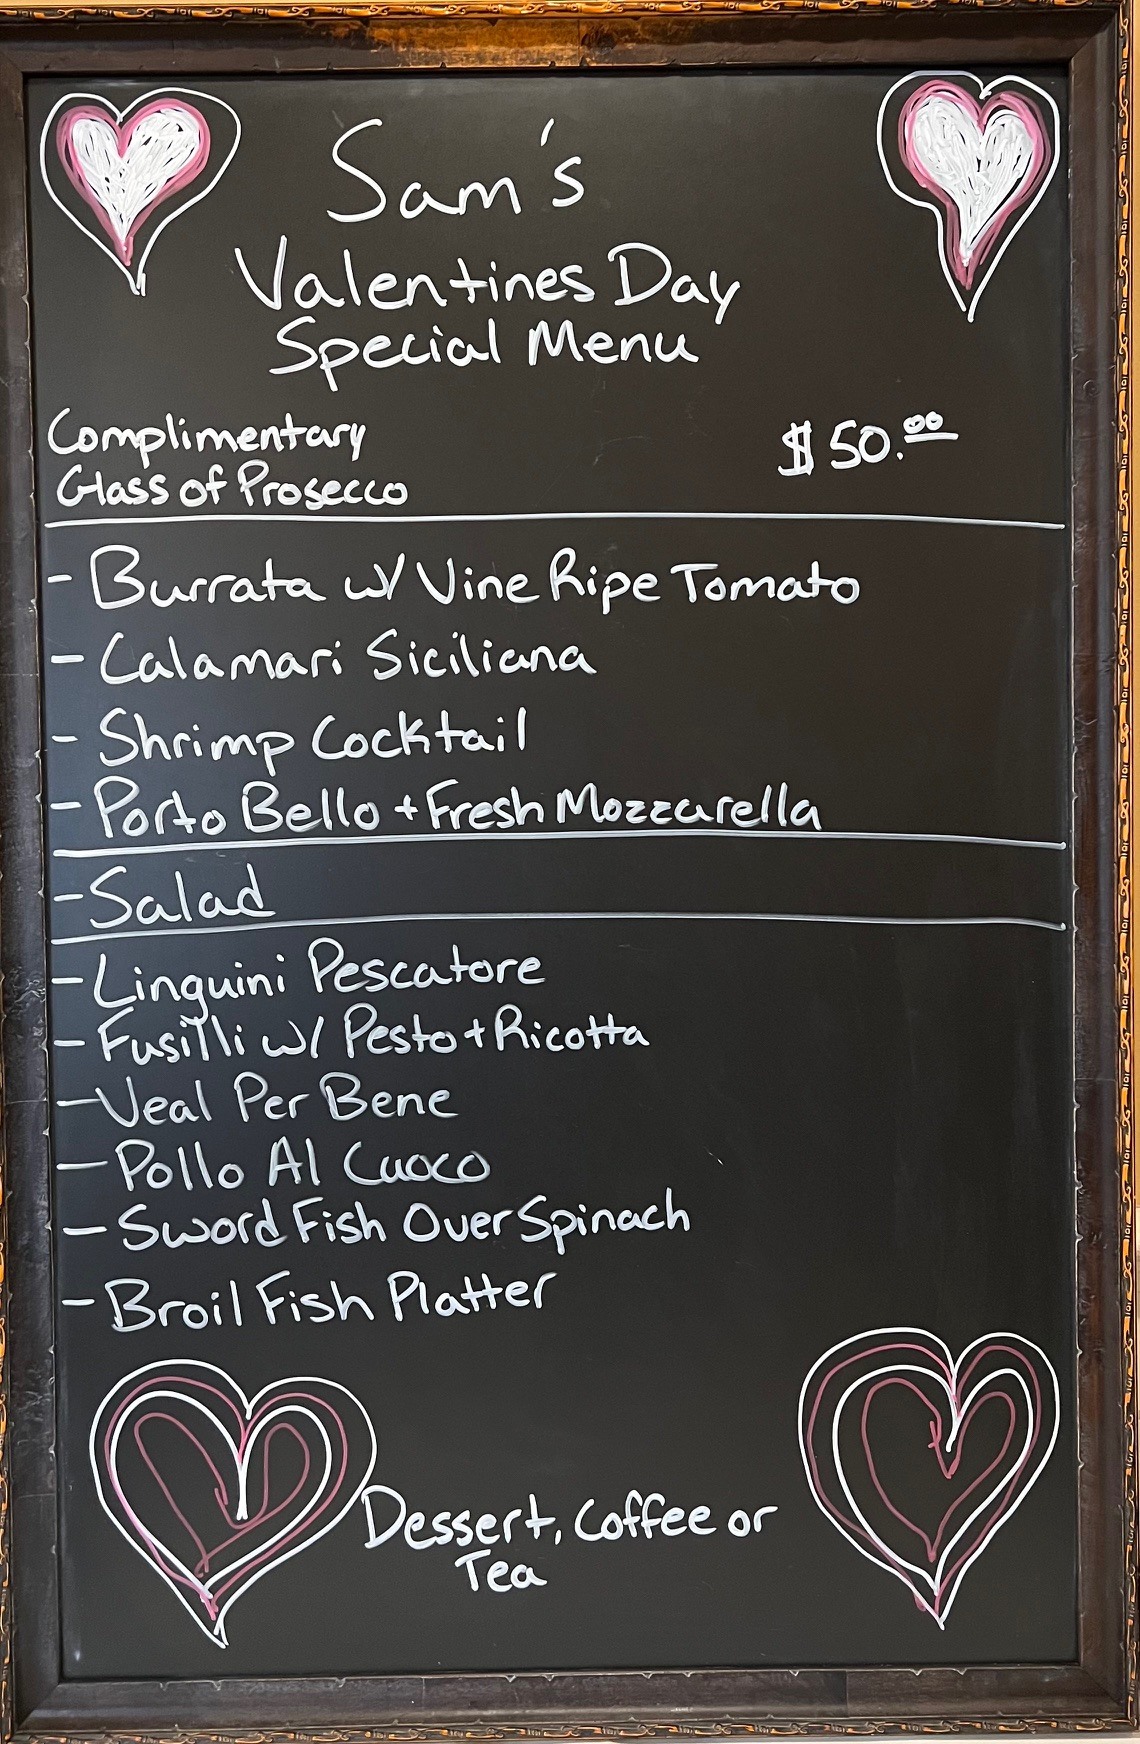 Sam's
Valentines Day
Special Menu
Complimentary
Glass of Prosecco
$50.00
- Burrata w/ Vine Ripe Tomato
- Calamari Siciliana
- Shrimp Cocktail
- Porto Bello + Fresh Mozzarella
- Salad
- Linguini Pescatore
- Fusilli w/ Pesto + Ricotta
- Veal Per Bene
- Pollo Al Cuoco
- Sword Fish Over Spinach
- Broil Fish Platter
Dessert, Coffee or
Tea